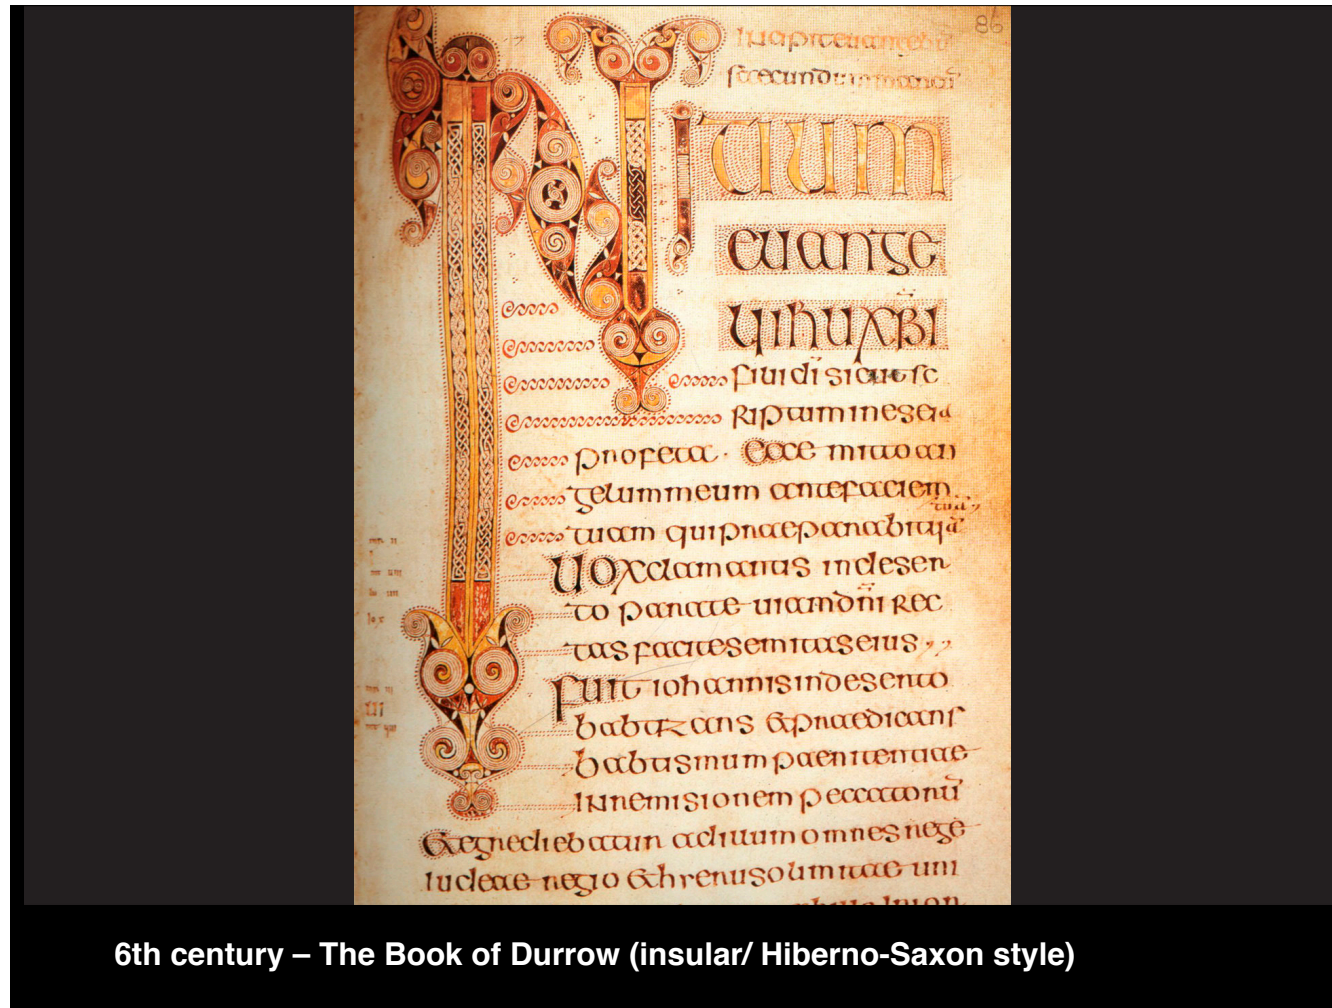 86
secundum marcū
INITIUM
euange
lii ihu xpi
filii dī sicut sc
riptum in eseia
profeta · Ecce mitto an
gelum meum ante faciem
tuā
tuam qui praeparabit uiā
Uox clamantis in deser
to parate uiam dn̄i rec
tas facite semitas eius
fuit iohannis in deserto
babtizans & praedicans
babtismum paenitentiae
in remisionem peccatorū
& egrediebatur ad illum omnes
iudeae regio & hierusolimitae uni
6th century – The Book of Durrow (insular/ Hiberno-Saxon style)